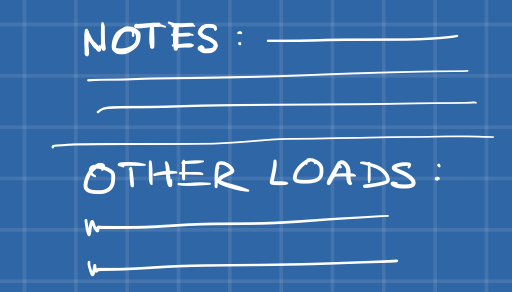 NOTES:
OTHER LOADS: